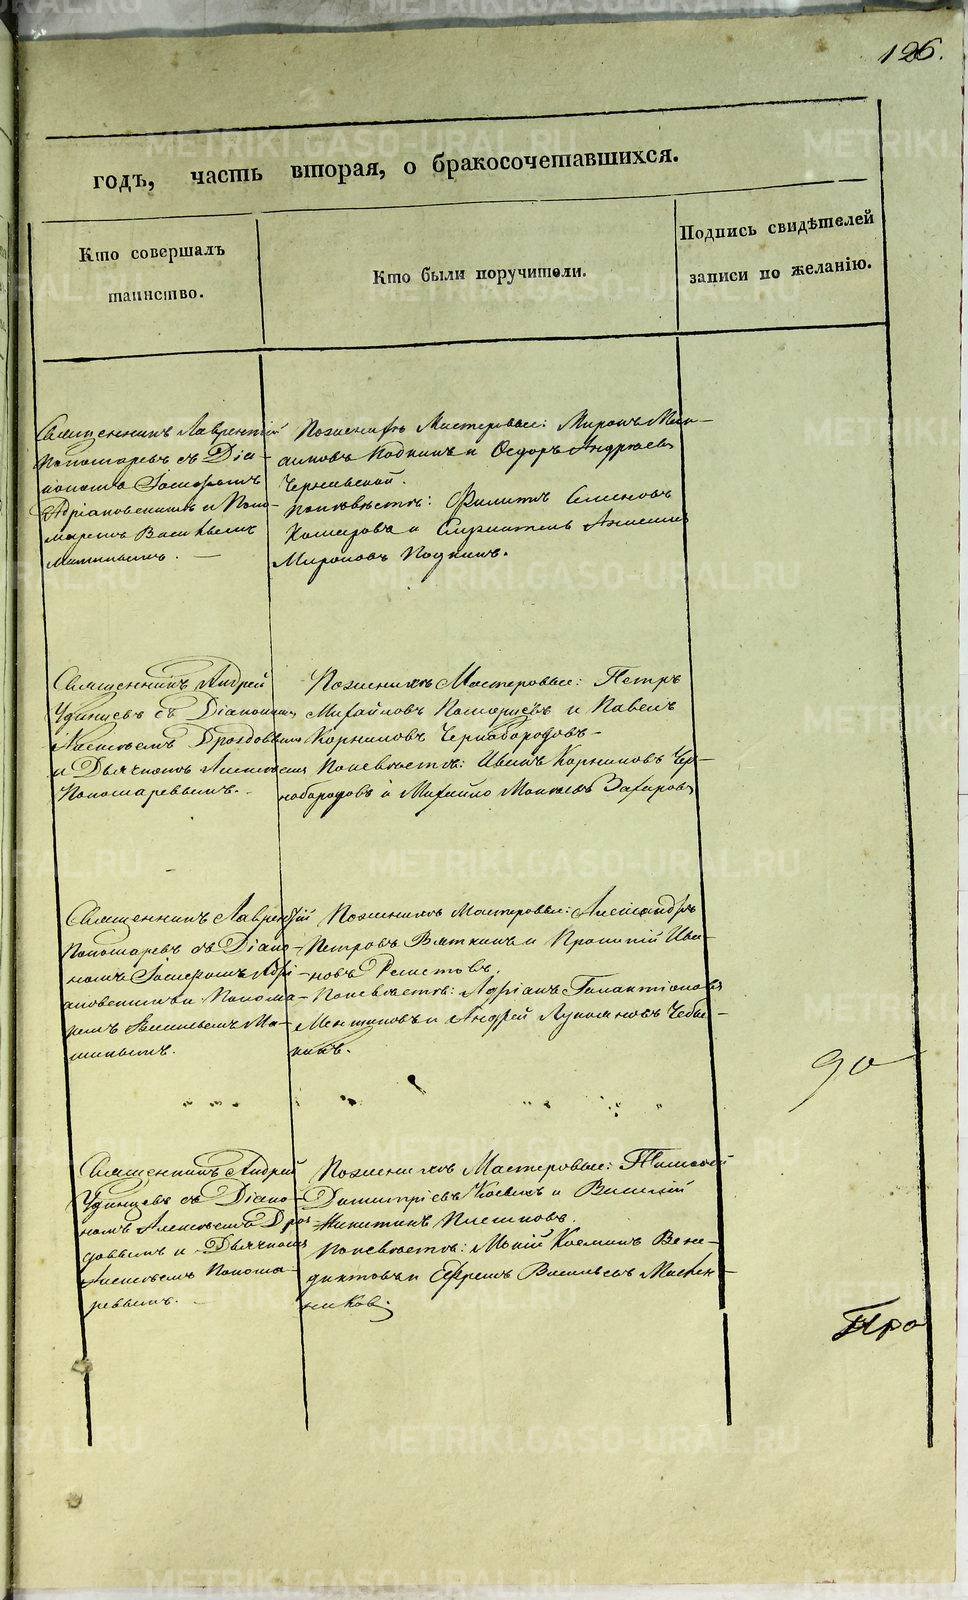 126.
годъ, часть вторая, о бракосочетавшихся.
Кто совершалъ
таинство.
Кто были поручители.
Подпись свидѣтелей
записи по желанію.
Священникъ Лаврентій
Пономаревъ съ Діа-
кономъ
Адріановскимъ и Поно-
маремъ Васильемъ
По женихѣ Мастеровые: Миронъ Мак-
симовъ и Ѳедоръ Андреевъ
По невѣстѣ: Филипъ Семеновъ
и
Мироновъ
Священникъ Андрей
Удинцевъ съ Діакономъ
Алексѣемъ Дроздовымъ
и Дьячкомъ Алексѣемъ
Пономаревымъ.
По женихѣ Мастеровые: Петръ
Михайловъ и Павелъ
Корниловъ Чернобородовъ-
По невѣстѣ: Иванъ Корниловъ Чер-
нобородовъ и Михайло Захаровъ
Священникъ Лаврентій
Пономаревъ съ Діако-
номъ Адрі-
ановскимъ и Понома-
ремъ Васильемъ Ма-
По женихѣ Мастеровые: Александръ
Петровъ Вяткинъ и Прокопій Ива-
новъ Решетовъ.
По невѣстѣ: Адріанъ Галактіоновъ
и Андрей
кинъ.
90
Священникъ Андрей
Удинцевъ съ Діако-
номъ Алексѣемъ Дроз-
довымъ и Дьячкомъ
Алексѣемъ Понома-
ревымъ.
По женихѣ Мастеровые: Тимофей
Димитріевъ и Василій
Никитинъ Плешковъ.
По невѣстѣ: Козминъ Вене-
диктовъ и Ефремъ Васильевъ Маслен-
никовъ.
Про